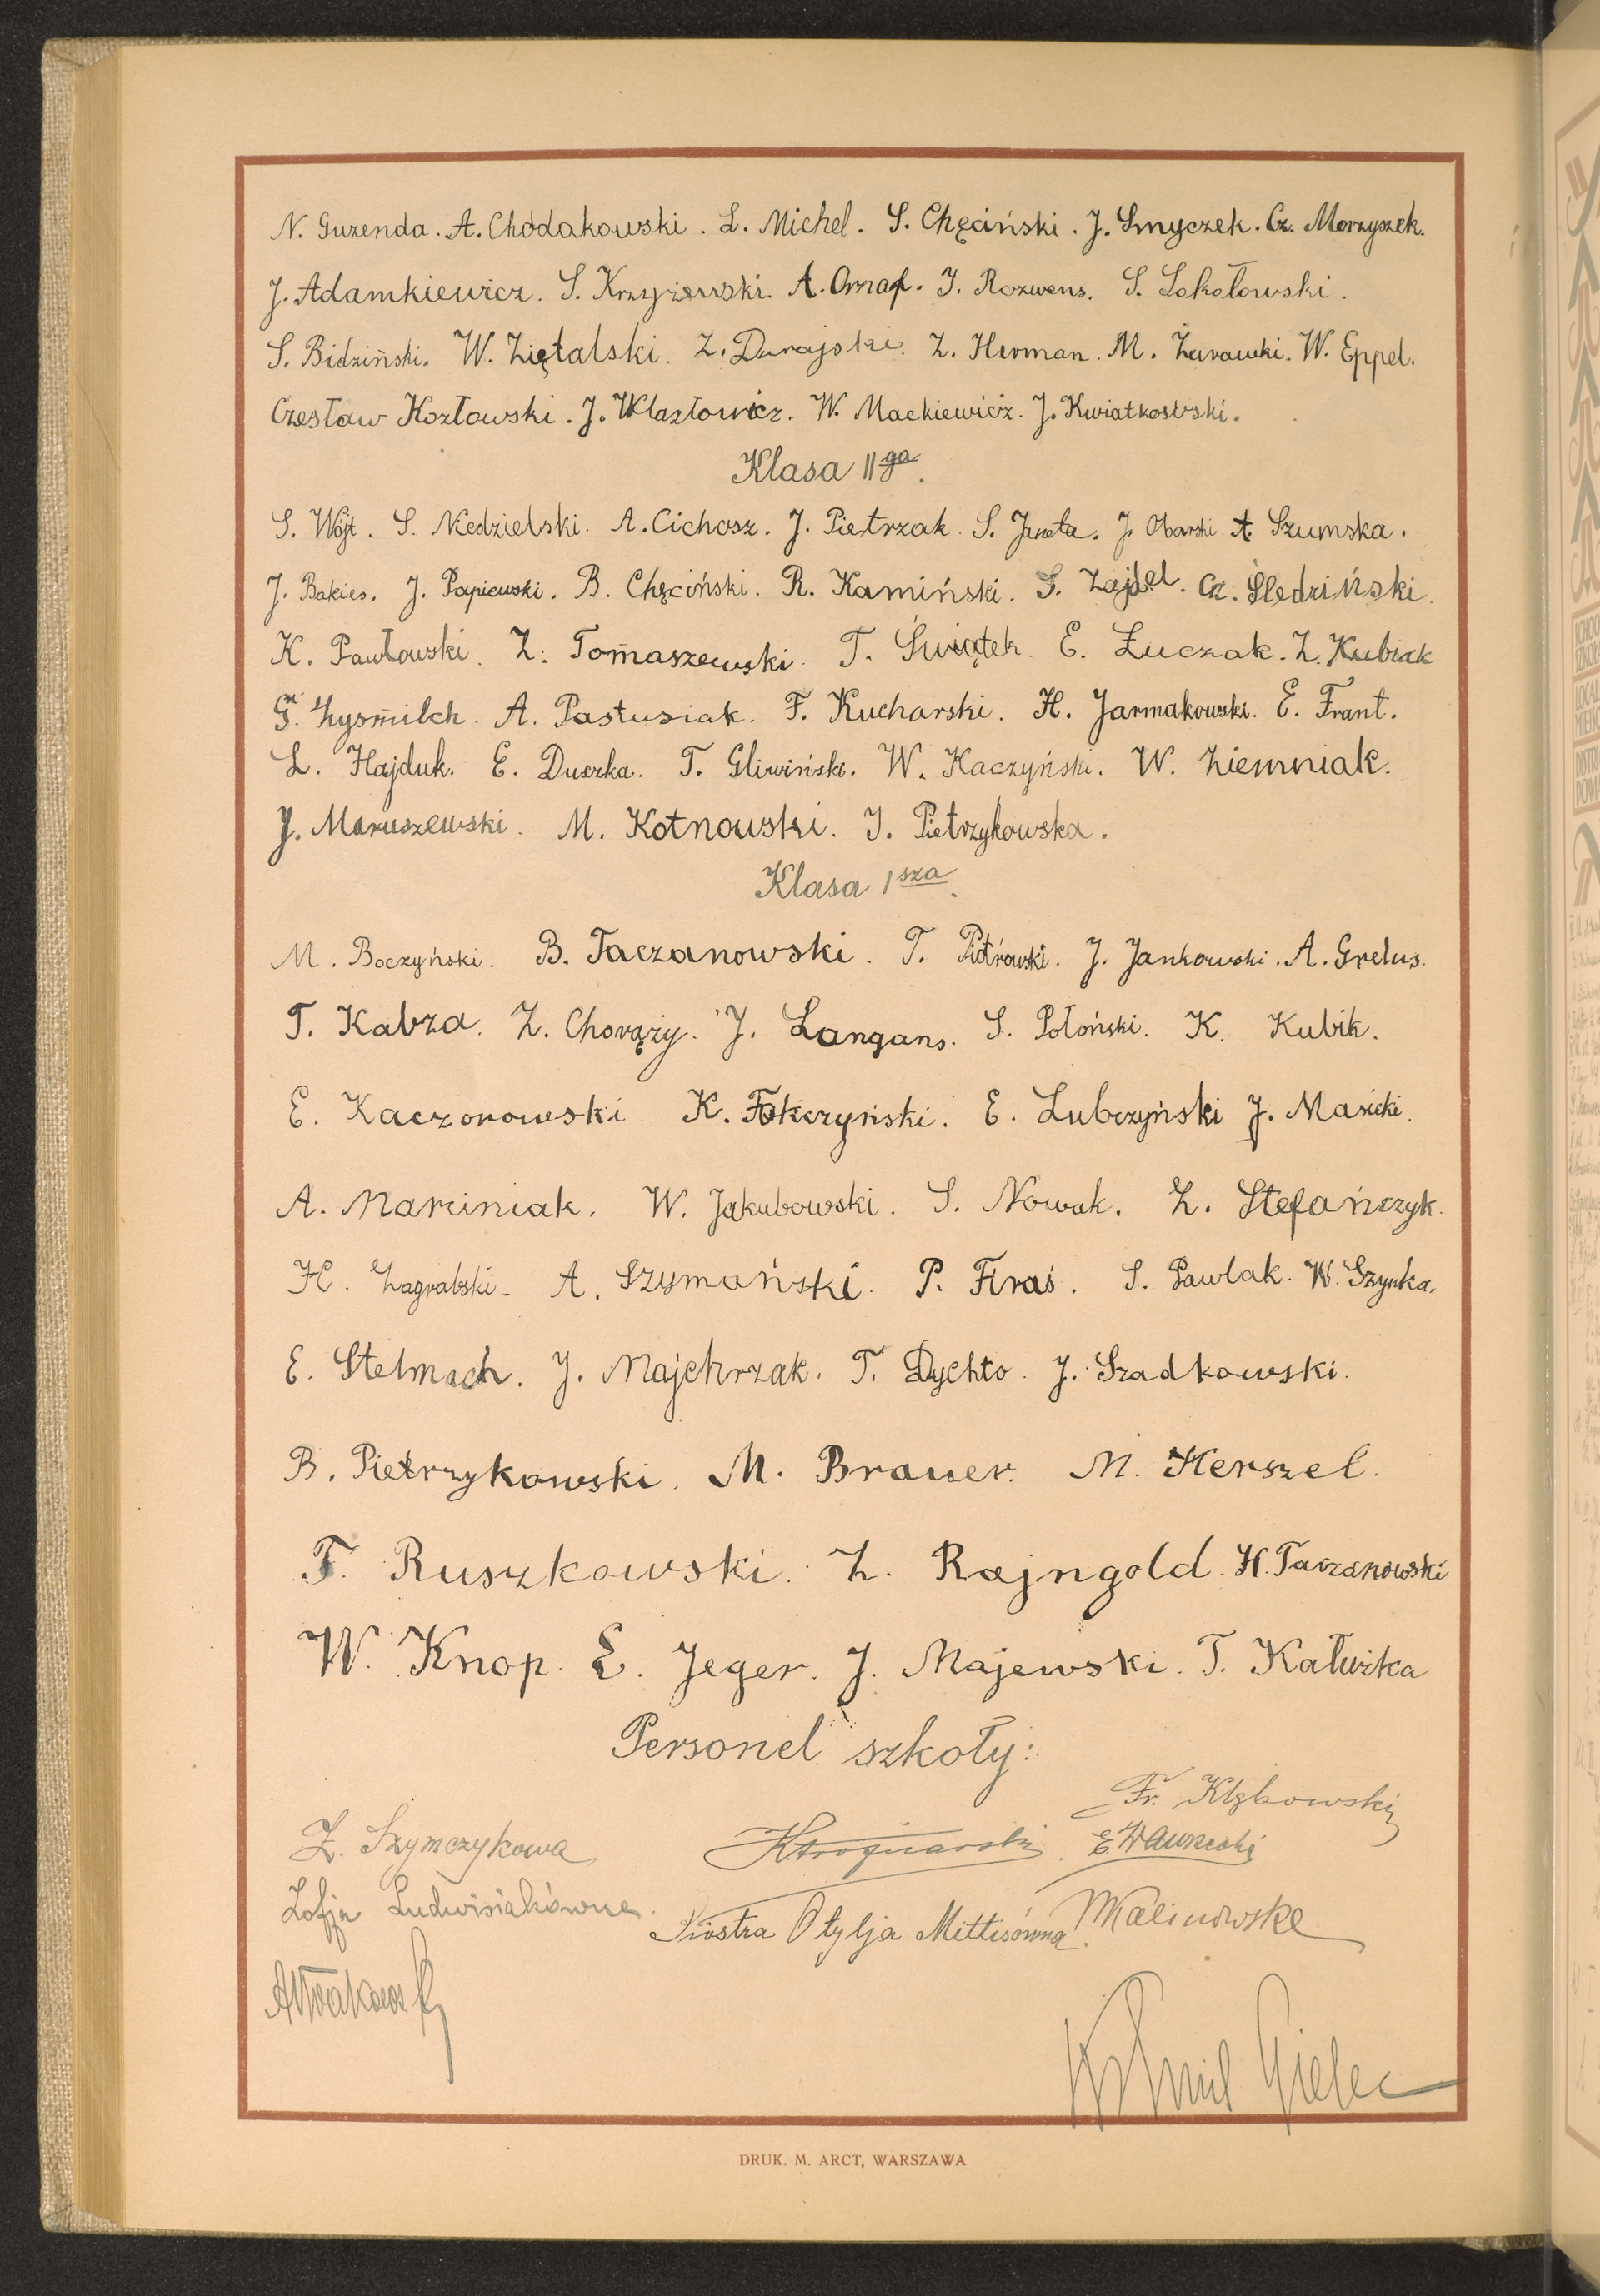 N. Guzenda. A. Chodakowski. L. Michel. S. Chęciński. J. Smyczek. Cz. Morzyszek.
J. Adamkiewicz. S. Krzyżewski. A. Ornaf. J. Rozwens. S. Sokołowski.
S. Bidziński. W. Ziętalski. Z. Durajski. Z. Herman. M. Żurawki. W. Eppel.
Czesław Kozłowski. J. Wlazłowicz. W. Mackiewicz. J. Kwiatkowski.
Klasa IIga.
S. Wójt. S. Niedzielski. A. Cichosz. J. Pietrzak. S. Janeta. J. Obarski. A. Szumska.
J. Bakies. J. Papiewski. B. Chęciński. R. Kamiński. S. Zajdel. Cz. Śledziński.
K. Pawłowski. Z. Tomaszewski. T. Świątek. E. Łuczak. Z. Kubiak
G. Zysmilch. A. Pastusiak. F. Kucharski. H. Jarmakowski. E. Frant.
L. Hajduk. E. Duszka. T. Gliwiński. W. Kaczyński. W. Ziemniak.
J. Maruszewski. M. Kotnowski. J. Pietrzykowska.
Klasa Isza.
M. Boczyński. B. Taczanowski. T. Piotrowski. J. Jankowski. A. Grelus.
T. Kabza. Z. Chorąży. J. Langans. S. Połoński. K. Kubik.
E. Kaczorowski. K. Fokczyński. E. Lubczyński J. Masicki.
A. Marciniak. W. Jakubowski. S. Nowak. Z. Stefańczyk.
H. Zagrabski. A. Szymański. P. Firaś. S. Pawlak. W. Szynka.
E. Stelmach. J. Majchrzak. T. Dychto. J. Szadkowski.
B. Pietrzykowski. M. Brauer. M. Herszel.
F. Ruszkowski. Z. Rajngold. H. Taczanowski
W. Knop. E. Jeger. J. Majewski. T. Kałużka
Personel szkoły:
Fr. Kłębowski
Z. Szymczykowa
Zofja Ludwisiakówna
Siostra Otylja Mittisówna. Malinowska
DRUK. M. ARCT, WARSZAWA